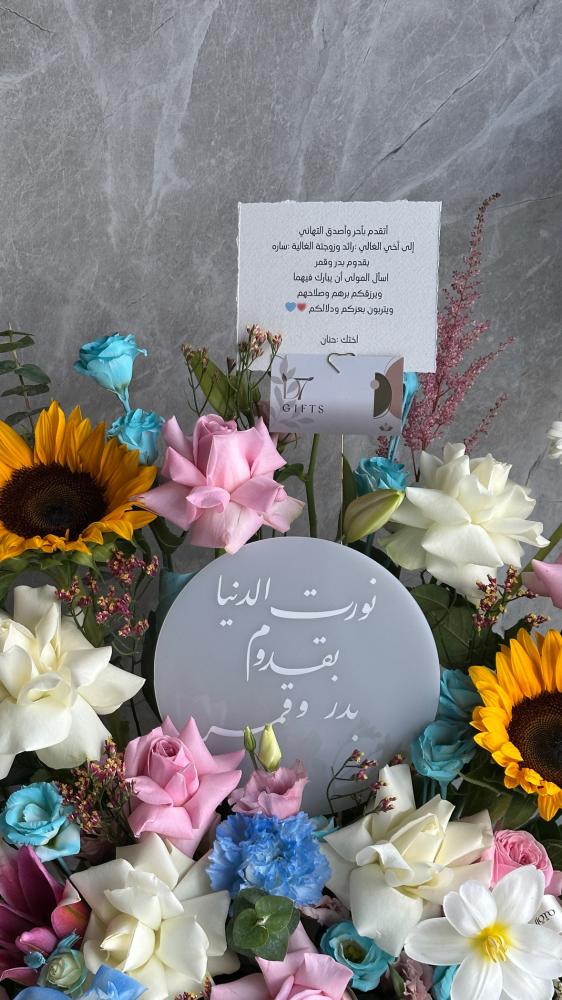 أتقدم بأحر وأصدق التهاني
إلى أخي الغالي :رائد وزوجتة الغالية :ساره
بقدوم بدر وقمر
اسأل المولى أن يبارك فيهما
ويرزقكم برهم وصلاحهم
ويتربون بعزكم ودلالكم
اختك :حنان
GIFTS
نورت الدنيا
بقدوم
بدر وقمر